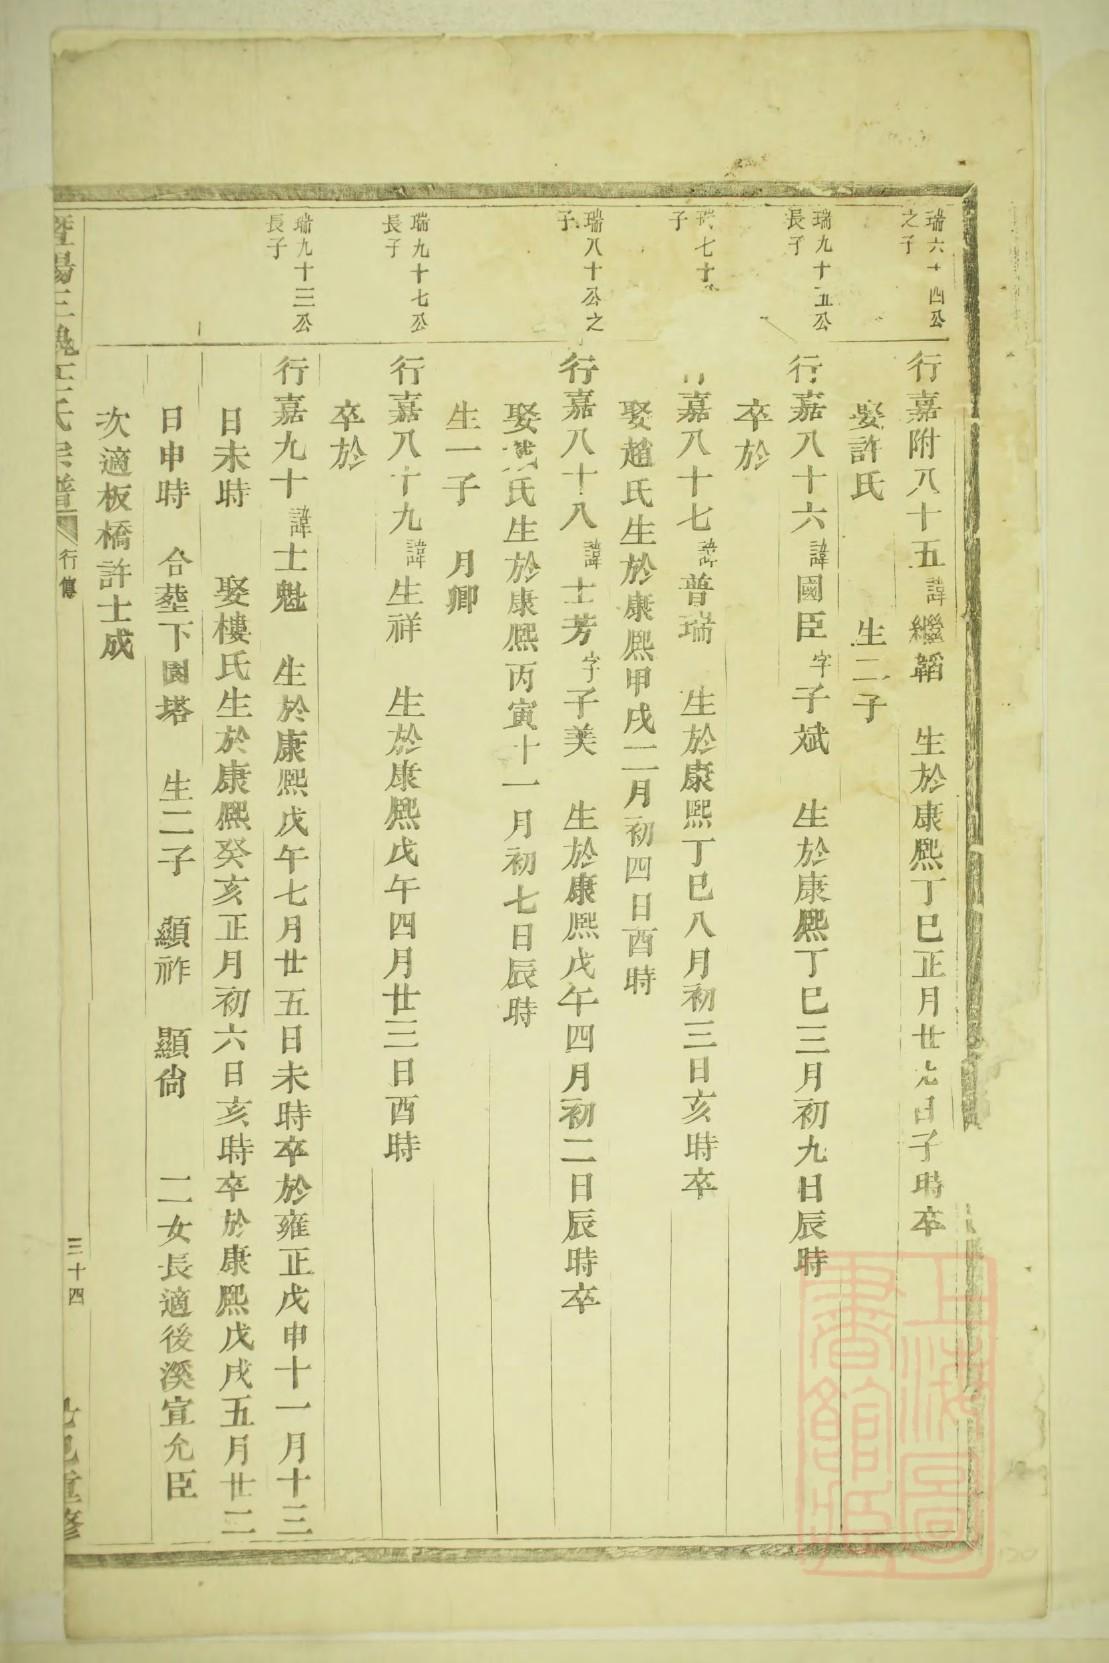 瑞六十四公之子
行嘉附八十五諱繼韜 生於康熙丁巳正月廿 日子時卒
娶許氏 生二子
瑞九十五公長子
行嘉八十六諱國臣字子斌 生於康熙丁巳三月初九日辰時
卒於
瑞七十 子
行嘉八十七諱普瑞 生於康熙丁巳八月初三日亥時卒
娶趙氏生於康熙甲戌二月初四日酉時
瑞八十公之子
行嘉八十八諱士芳字子美 生於康熙戊午四月初二日辰時卒
娶 氏生於康熙丙寅十一月初七日辰時
生一子 月卿
瑞九十七公長子
行嘉八十九諱生祥 生於康熙戊午四月廿三日酉時
卒於
瑞九十三公長子
行嘉九十諱士魁 生於康熙戊午七月廿五日未時卒於雍正戊申十一月十三
日未時 娶樓氏生於康熙癸亥正月初六日亥時卒於康熙戊戌五月廿二
日申時 合塟下園塔 生二子 顯祚 顯尙 二女長適後溪宣允臣
次適板橋許士成
暨陽 氏宗譜 行傳 三十四 重修
上海圖書館藏